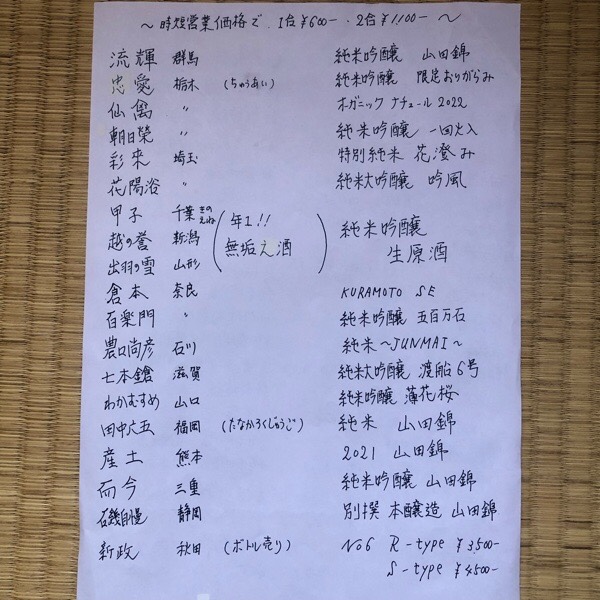 ～時短営業価格で、1合¥600-・2合¥1,100-～
流輝 群馬 純米吟醸 山田錦
忠愛 栃木 (ちゅうあい) 純米吟醸 限定おりがらみ
仙禽 〃 オガニック ナチュール 2022
朝日榮 〃 純米吟醸 一回火入
彩來 埼玉 特別純米 花澄み
花陽浴 〃 純米大吟醸 吟風
甲子 千葉 きのえね
越の誉 新潟 (年1!! 無垢え酒) 純米吟醸 生原酒
出羽の雪 山形
倉本 奈良 KURAMOTO SE
百楽門 〃 純米吟醸 五百万石
農口尚彦 石川 純米～JUNMAI～
七本鎗 滋賀 純米大吟醸 渡船6号
わかむすめ 山口 純米吟醸 薄花桜
田中六五 福岡 (たなかろくじゅうご) 純米 山田錦
産土 熊本 2021 山田錦
而今 三重 純米吟醸 山田錦
磯自慢 静岡 別撰 本醸造 山田錦
新政 秋田 (ボトル売り) No6 R-type ¥3,500-
S-type ¥4,500-